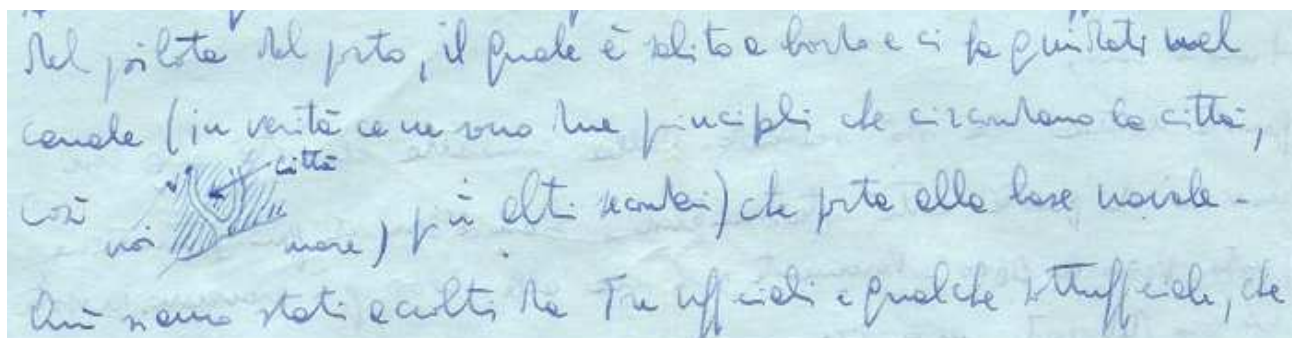 del pilota del porto, il quale è salito a bordo e ci ha guidati nel
canale (in verità ce ne sono due principali che circondano la città,
così noi città mare) più altri secondari) che porta alla base navale.
Qui siamo stati accolti da Tre ufficiali e qualche sottufficiale, che